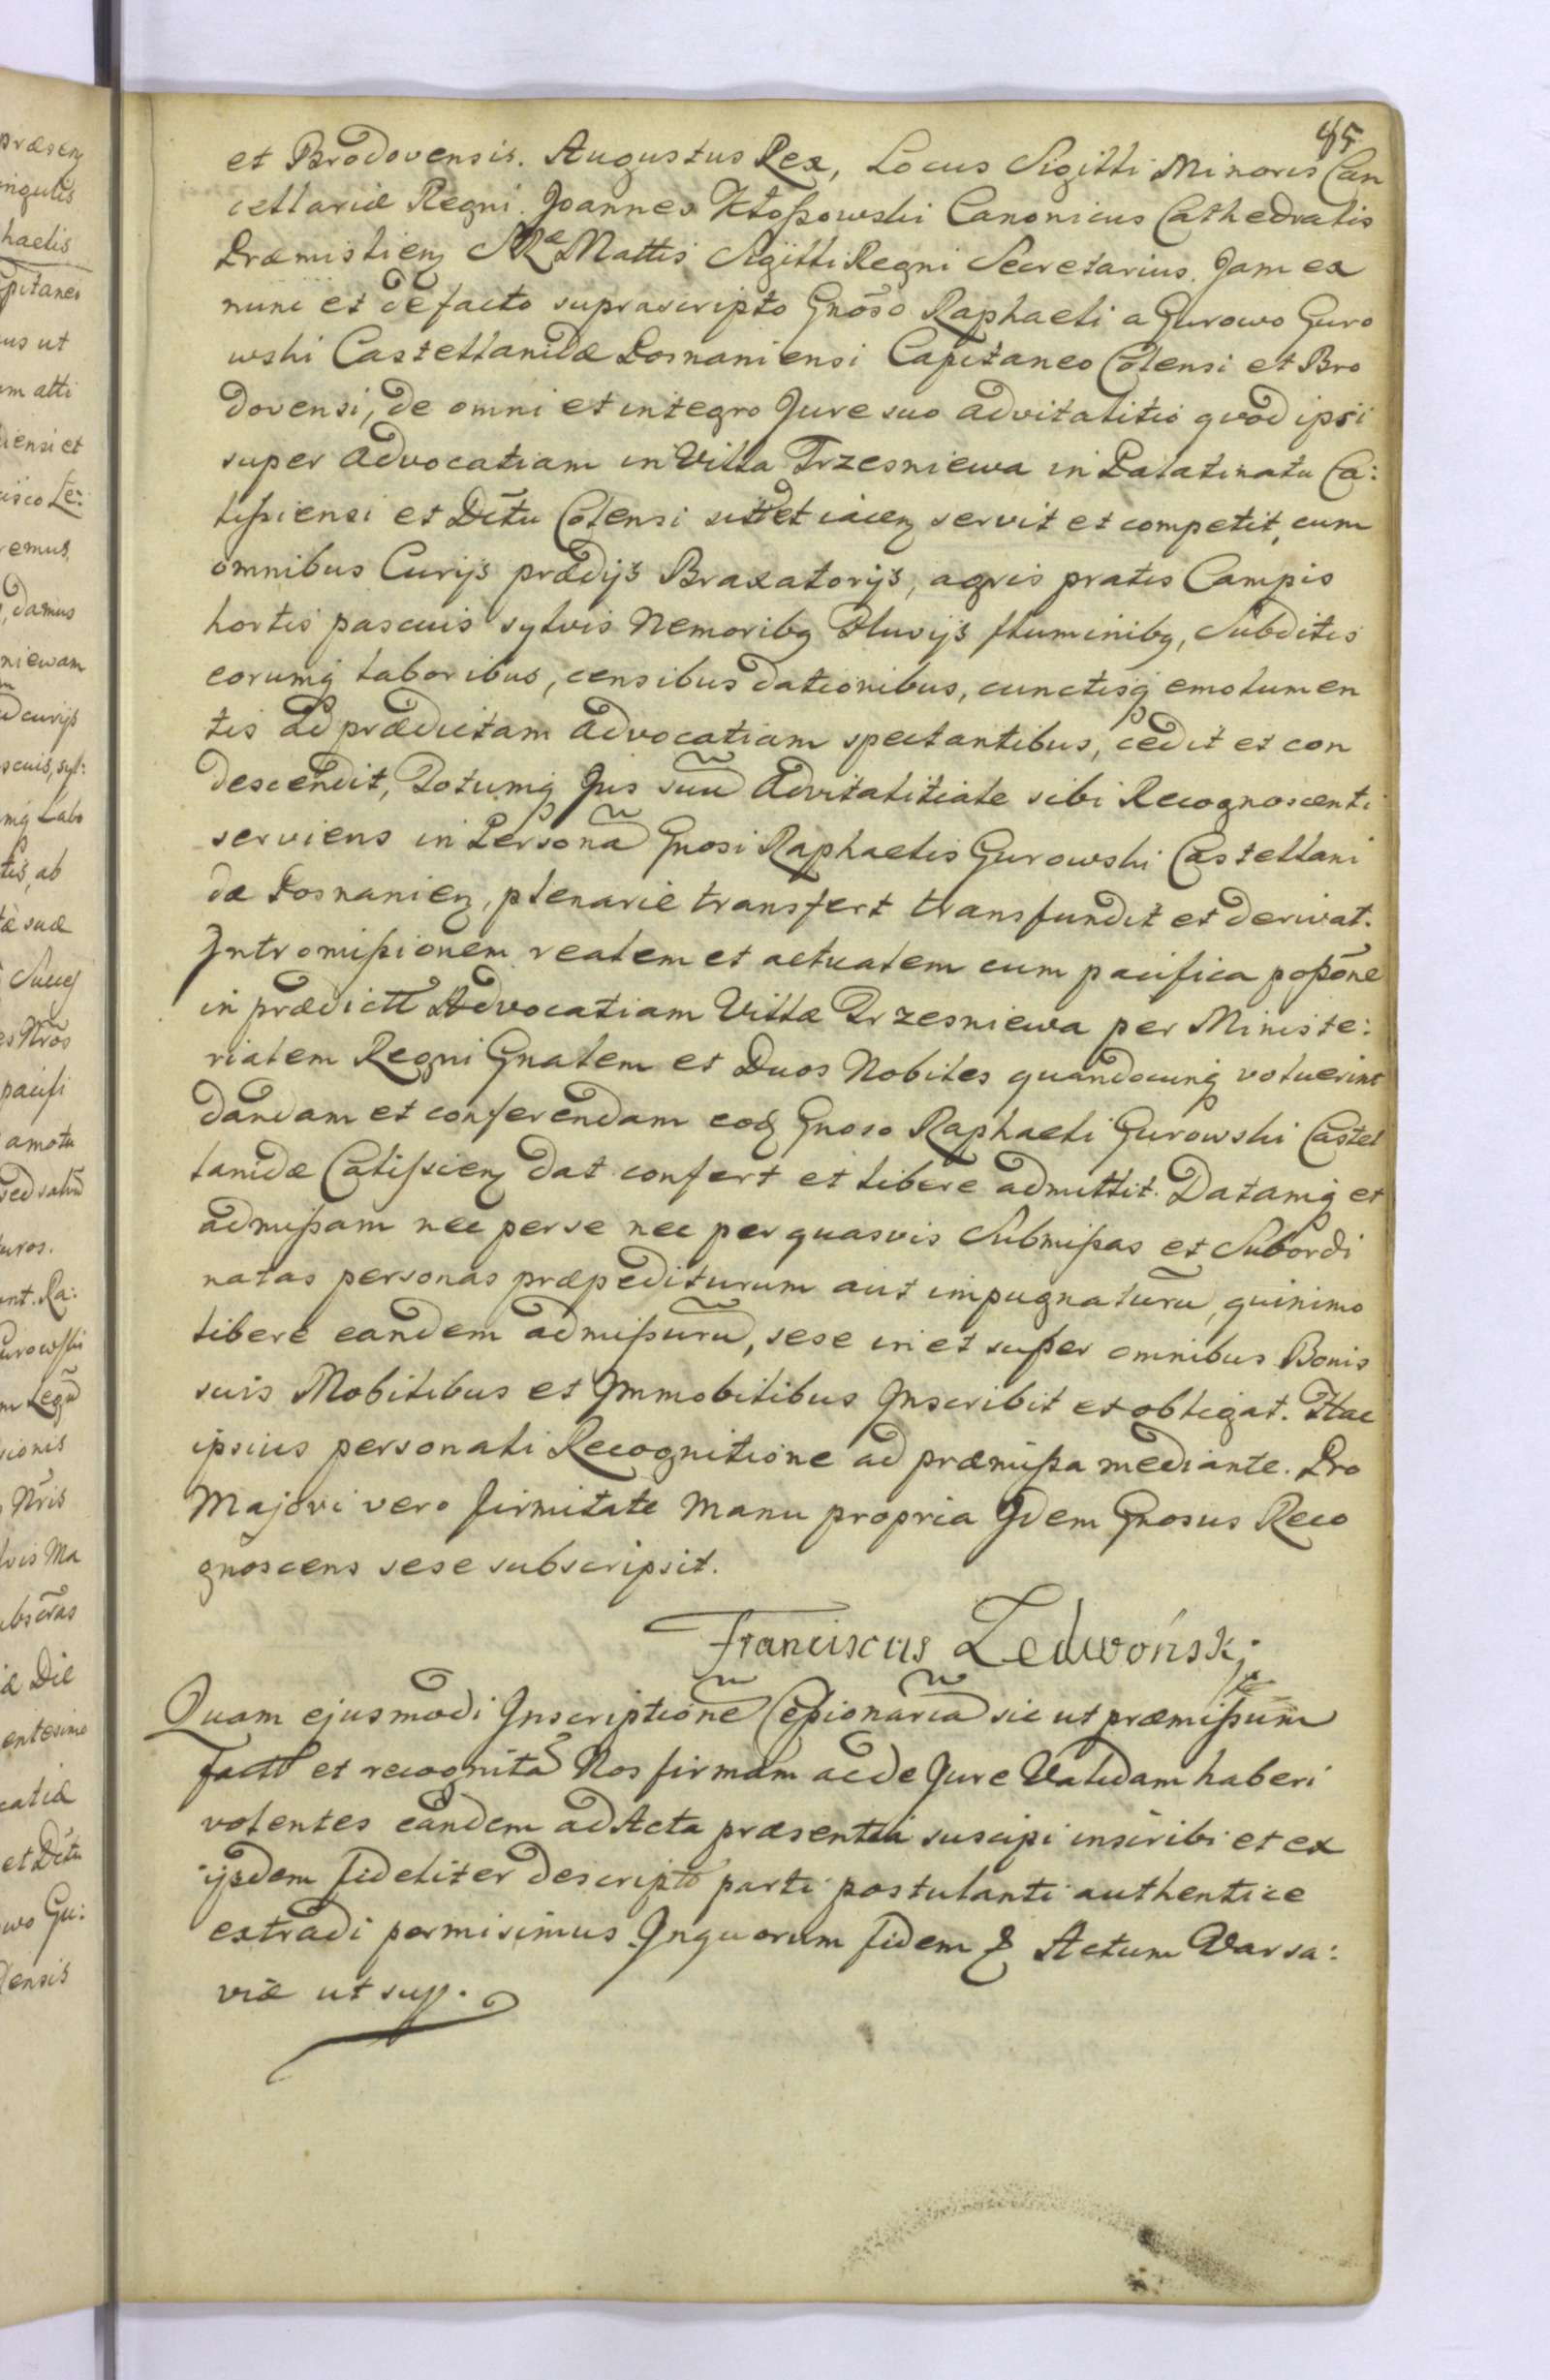 45
et Brodovensis. Augustus Rex, Locus Sigilli Minoris Can
cellariæ Regni. Joannes Kłoßowski Canonicus Cathedralis
Præmislien SRæ Mattis Sigilli Regni Secretarius. Jam ex
nunc et de facto suprascripto Gnōso Raphaeli a Gurowo Guro
wski Castellanidæ Posnaniensi Capitaneo Colensi et Bro
dovensi, de omni et integro Jure suo advitalitio quod ipsi
super advocatiam in Villa Trzesniewa in Palatinatu Ca:
lißiensi et Dctū Colensi sit̄ et iacen servit et competit, cum
omnibus Curijs prædijs Braxatorijs, agris pratis Campis
hortis pascuis sylvis Nemoribq Fluvijs fluminibq, Subditis
eorumq laboribus, censibus dationibus, cunctisq emolumen
tis ad prædictam advocatiam spectantibus, cedit et con
descendit, Totumq Jus suū Advitalitiale sibi Recognoscenti
serviens in Personā Gnosi Raphaelis Gurowski Castellani
dæ Posnanien, plenarie transfert transfundit et derivat.
Intromißionem realem et actualem cum pacifica poßōne
in prædictā Advocatiam Villæ Trzesniewa per Ministe:
rialem Regni Gnalem et Duos Nobiles quandocunq voluerint
dandam et conferendam eod Gnoso Raphaeli Gurowski Castel
lanidæ Calißien dat confert et libere admittit. Datamq et
admißam nec per se nec per quasvis Submißas et Subordi
natas personas præpediturum aut impugnaturū, quinimo
libere eandem admißurū, sese in et super omnibus Bonis
suis Mobilibus et Immobilibus Inscribit et obligat. Hac
ipsius personali Recognitione ad præmißa mediante. Pro
Majori vero firmitate Manu propria Idem Gnosus Reco
gnoscens sese subscripsit.
Franciscus Ledwoński
Quam ejusmodi Inscriptionē Ceßionariā sic ut præmißum
factā et recognitā Nos firmam ac de Jure Validam haberi
volentes eandem ad Acta præsentia suscipi inscribi et ex
ijsdem fideliter descriptā parti postulanti authentice
extradi permisimus. In quorum fidem & Actum Varsa:
viæ ut sup.